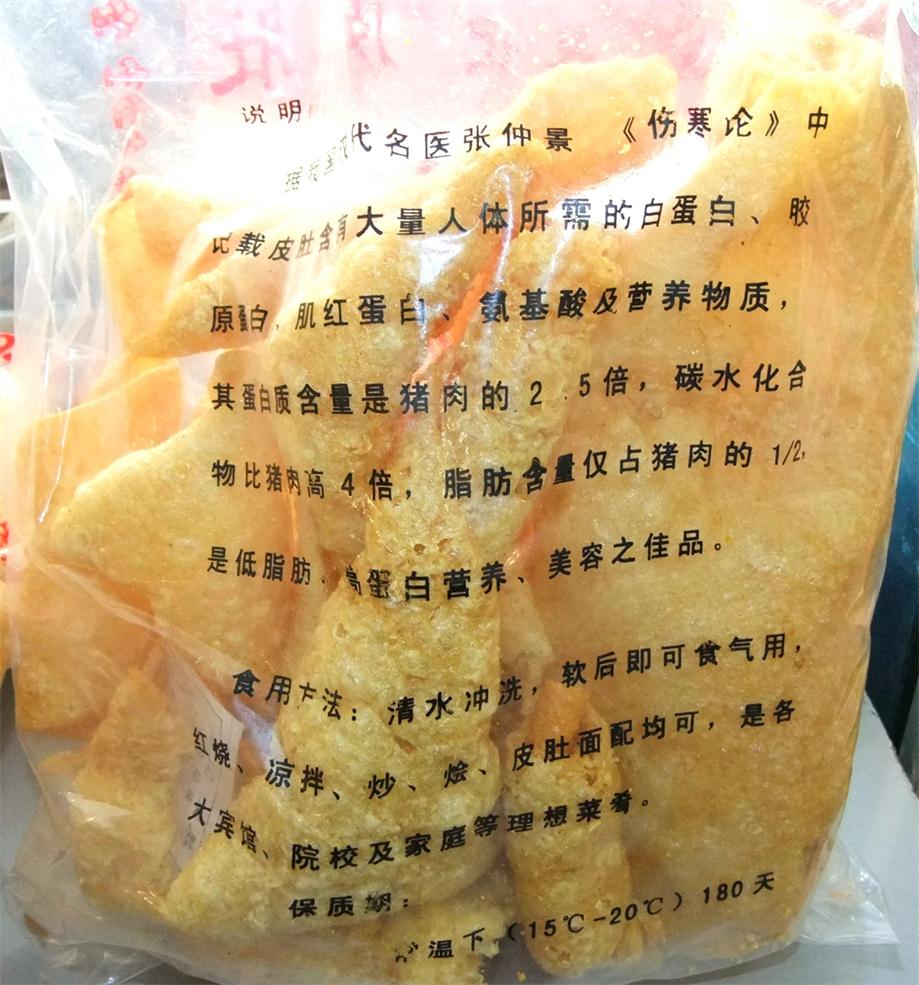 说明
据我国汉代名医张仲景《伤寒论》中
记载皮肚含有大量人体所需的白蛋白、胶
原蛋白、肌红蛋白、氨基酸及营养物质，
其蛋白质含量是猪肉的2.5倍，碳水化合
物比猪肉高4倍，脂肪含量仅占猪肉的1/2，
是低脂肪、高蛋白营养、美容之佳品。
食用方法：清水冲洗，软后即可食气用，
红烧、凉拌、炒、烩、皮肚面配均可，是各
大宾馆、院校及家庭等理想菜肴。
保质期：
温下（15℃-20℃）180天